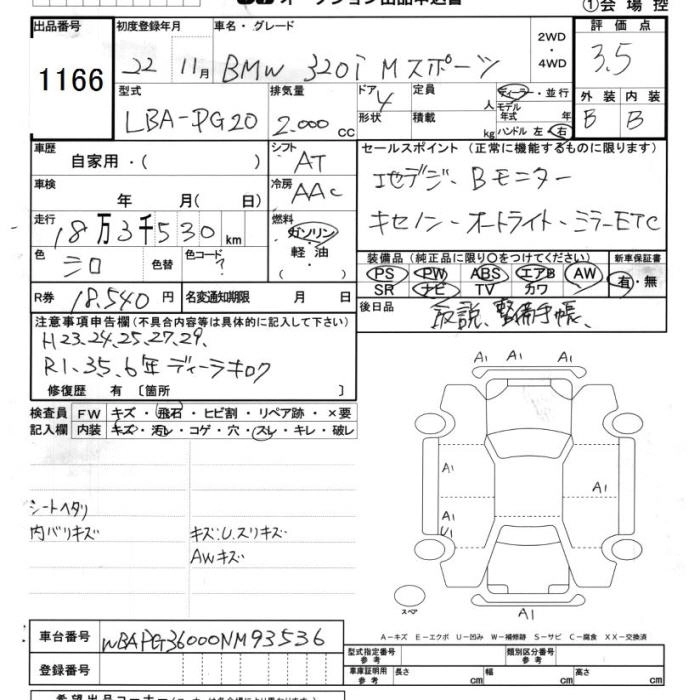 ①会場控
出品番号 初度登録年月 車名・グレード 評価点
1166 22 11月 BMW 320i Mスポーツ 2WD・4WD 3.5
型式 排気量 ドア 定員 ディーラー・並行 外装 内装
LBA-PG20 2.000cc 4 人 モデル年式 年 B B
形状 積載 kg ハンドル 左・右
車歴 シフト セールスポイント (正常に機能するものに限ります)
自家用・( ) AT
車検 冷房 社地デジ、Bモニター
年 月( 日) AAC
走行 燃料 キセノン-オートライト-ミラーETC
18万3千530km ガソリン・軽油・( )
色 色替 色コード 装備品 (純正品に限り○をつけてください) 新車保証書
シロ ? PS PW ABS エアB AW 有・無
SR ナビ TV カワ
R券 18.540円 名変通知期限 月 日 後日品 取説、整備手帳、
注意事項申告欄(不具合内容等は具体的に記入して下さい)
H23.24.25.27.29.
R1.35.6年ディーラキロク
修復歴 有 〔箇所 〕
検査員 FW キズ・飛石・ヒビ割・リペア跡・×要
記入欄 内装 キズ・汚レ・コゲ・穴・スレ・キレ・破レ
A1 A1 A1
A1 A1
A1
U1
シートヘタリ
内バリキズ キズ:U.スリキズ
AWキズ
スペア
A1
A-キズ E-エクボ U-凹み W-補修跡 S-サビ C-腐食 XX-交換済
車台番号 WBAPG36000NM93536
型式指定番号 参考 類別区分番号 参考
登録番号 車庫証明用 参考 長さ cm 幅 cm 高さ cm